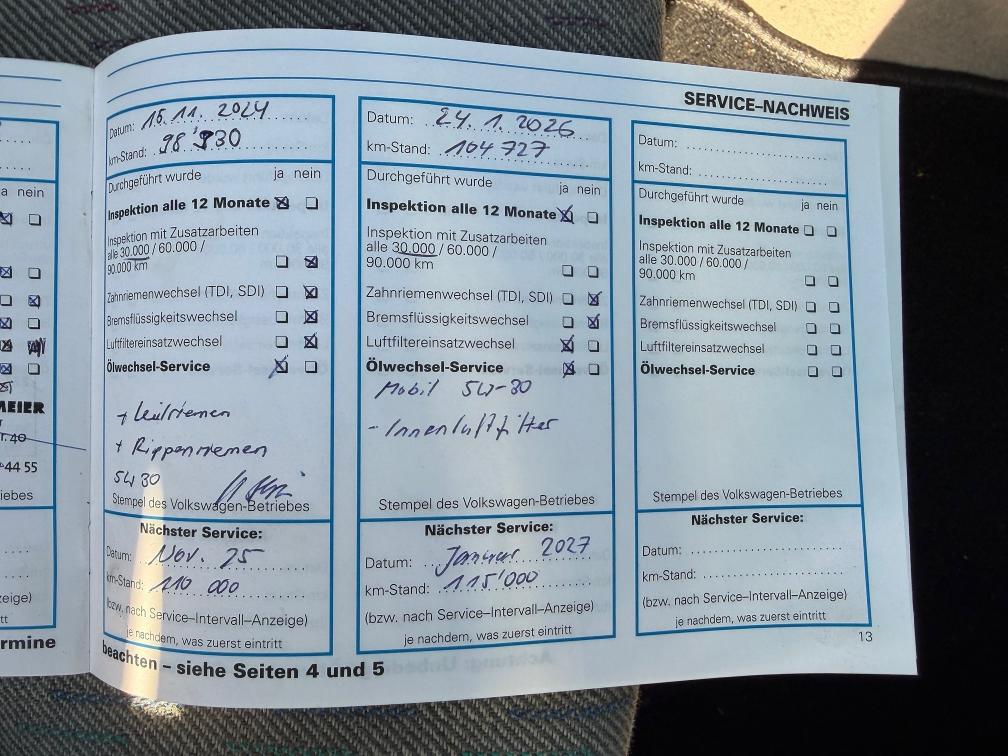 SERVICE–NACHWEIS
a nein
MEIER
r. 40
44 55
iebes
zeige)
tt
rmine
Datum: 15.11.2024
km-Stand: 98'930
Durchgeführt wurde ja nein
Inspektion alle 12 Monate
Inspektion mit Zusatzarbeiten
alle 30.000 / 60.000 /
90.000 km
Zahnriemenwechsel (TDI, SDI)
Bremsflüssigkeitswechsel
Luftfiltereinsatzwechsel
Ölwechsel-Service
+ Keilriemen
+ Rippenriemen
5W30
Stempel des Volkswagen-Betriebes
Nächster Service:
Datum: Nov. 25
km-Stand: 110 000
(bzw. nach Service–Intervall–Anzeige)
je nachdem, was zuerst eintritt
beachten – siehe Seiten 4 und 5
Datum: 24.1.2026
km-Stand: 104727
Durchgeführt wurde ja nein
Inspektion alle 12 Monate
Inspektion mit Zusatzarbeiten
alle 30.000 / 60.000 /
90.000 km
Zahnriemenwechsel (TDI, SDI)
Bremsflüssigkeitswechsel
Luftfiltereinsatzwechsel
Ölwechsel-Service
Mobil 5W-30
- Innenluftfilter
Stempel des Volkswagen-Betriebes
Nächster Service:
Datum: Januar 2027
km-Stand: 115'000
(bzw. nach Service–Intervall–Anzeige)
je nachdem, was zuerst eintritt
Datum:
km-Stand:
Durchgeführt wurde ja nein
Inspektion alle 12 Monate
Inspektion mit Zusatzarbeiten
alle 30.000 / 60.000 /
90.000 km
Zahnriemenwechsel (TDI, SDI)
Bremsflüssigkeitswechsel
Luftfiltereinsatzwechsel
Ölwechsel-Service
Stempel des Volkswagen-Betriebes
Nächster Service:
Datum:
km-Stand:
(bzw. nach Service–Intervall–Anzeige)
je nachdem, was zuerst eintritt
13